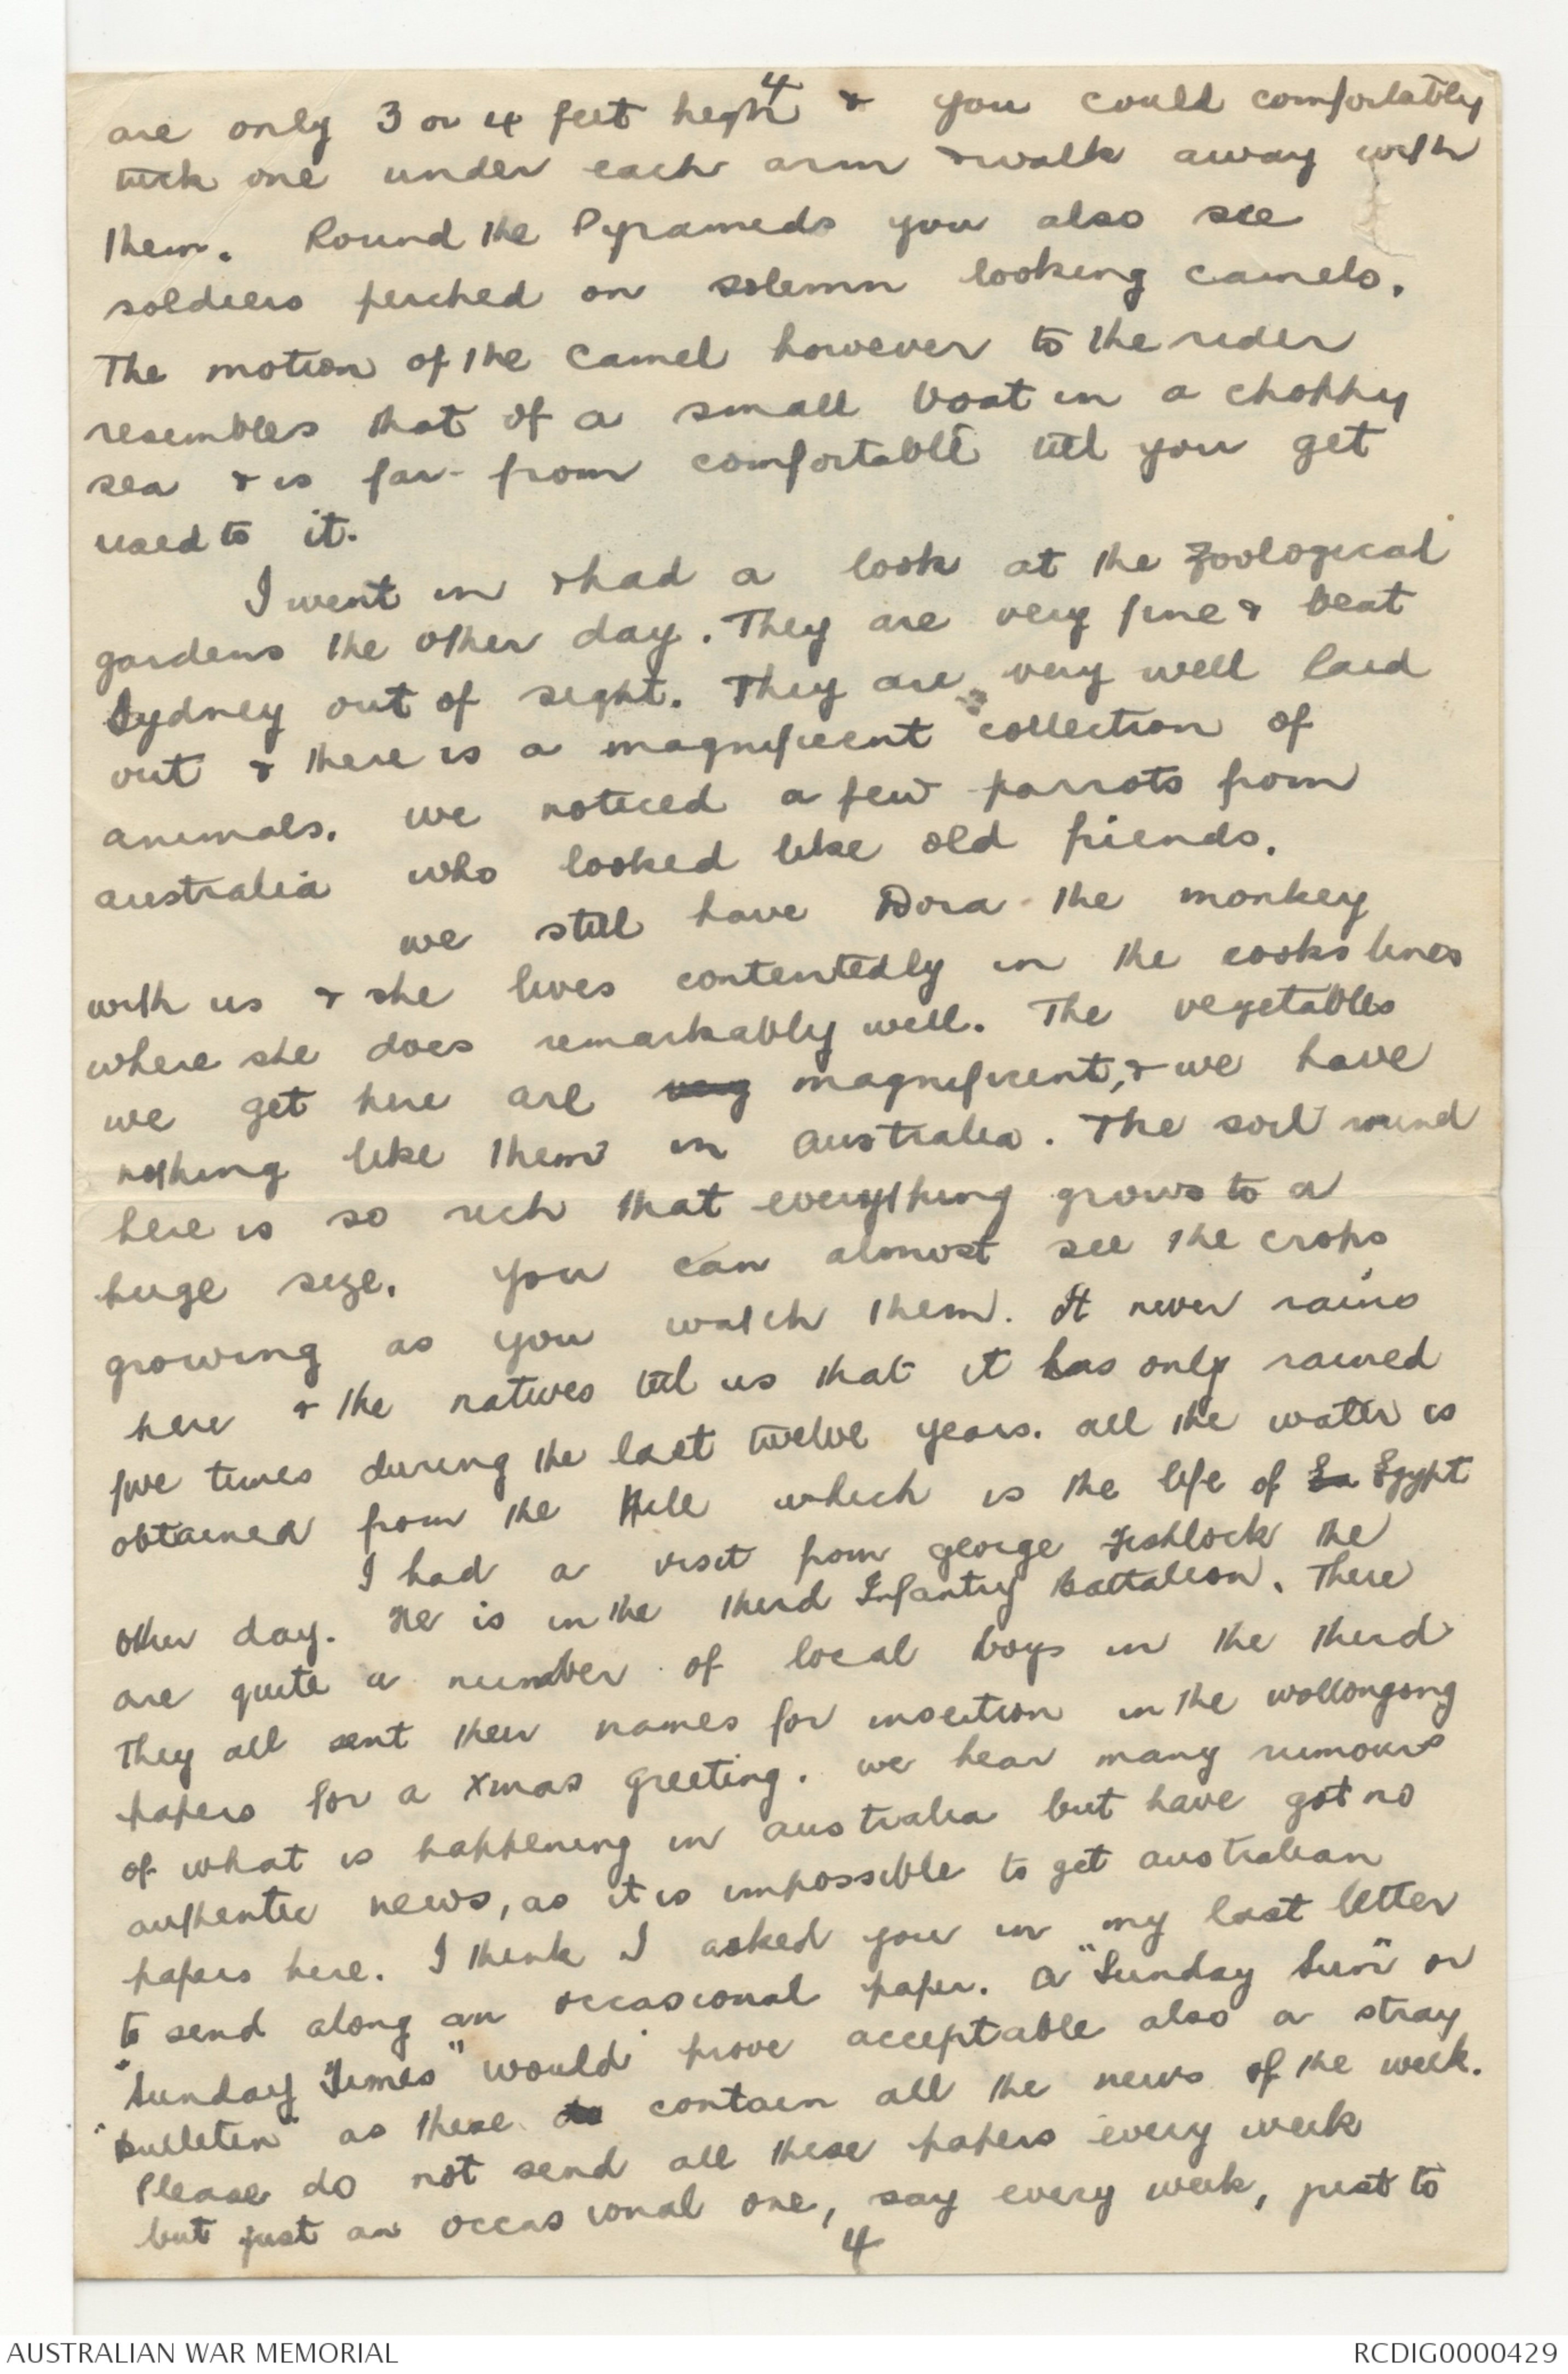 4
are only 3 or 4 feet high & you could comfortably
tuck one under each arm & walk away with
them. Round the Pyramids you also see
soldiers perched on solemn looking camels.
The motion of the Camel however to the rider
resembles that of a small boat in a choppy
sea & is far from comfortable till you get
used to it.
I went in & had a look at the Zoological
gardens the other day. They are very fine & beat
Sydney out of sight. They are very well laid
out & there is a magnificent collection of
animals. We noticed a few parrots from
Australia who looked like old friends.
We still have Dora the monkey
with us & she lives contentedly in the cooks lines
where she does remarkably well. The vegetables
we get here are very magnificent, & we have
nothing like them in Australia. The soil round
here is so rich that everything grows to a
huge size. You can almost see the crops
growing as you watch them. It never rains
here & the natives tell us that it has only rained
five times during the last twelve years. All the water is
obtained from the Nile which is the life of Ea Egypt
I had a visit from George Fishlock the
other day. He is in the third Infantry Battalion. There
are quite a number of local boys in the third
They all sent their names for insertion in the Wollongong
papers for a Xmas greeting. We hear many rumours
of what is happening in Australia but have got no
authentic news, as it is impossible to get Australian
papers here. I think I asked you in my last letter
to send along an occasional paper. A "Sunday Sun" or
"Sunday Times" would prove acceptable also a stray
"Bulletin" as these do contain all the news of the week.
Please do not send all these papers every week
but just an occasional one, say every week, just to
4
AUSTRALIAN WAR MEMORIAL
RCDIG0000429